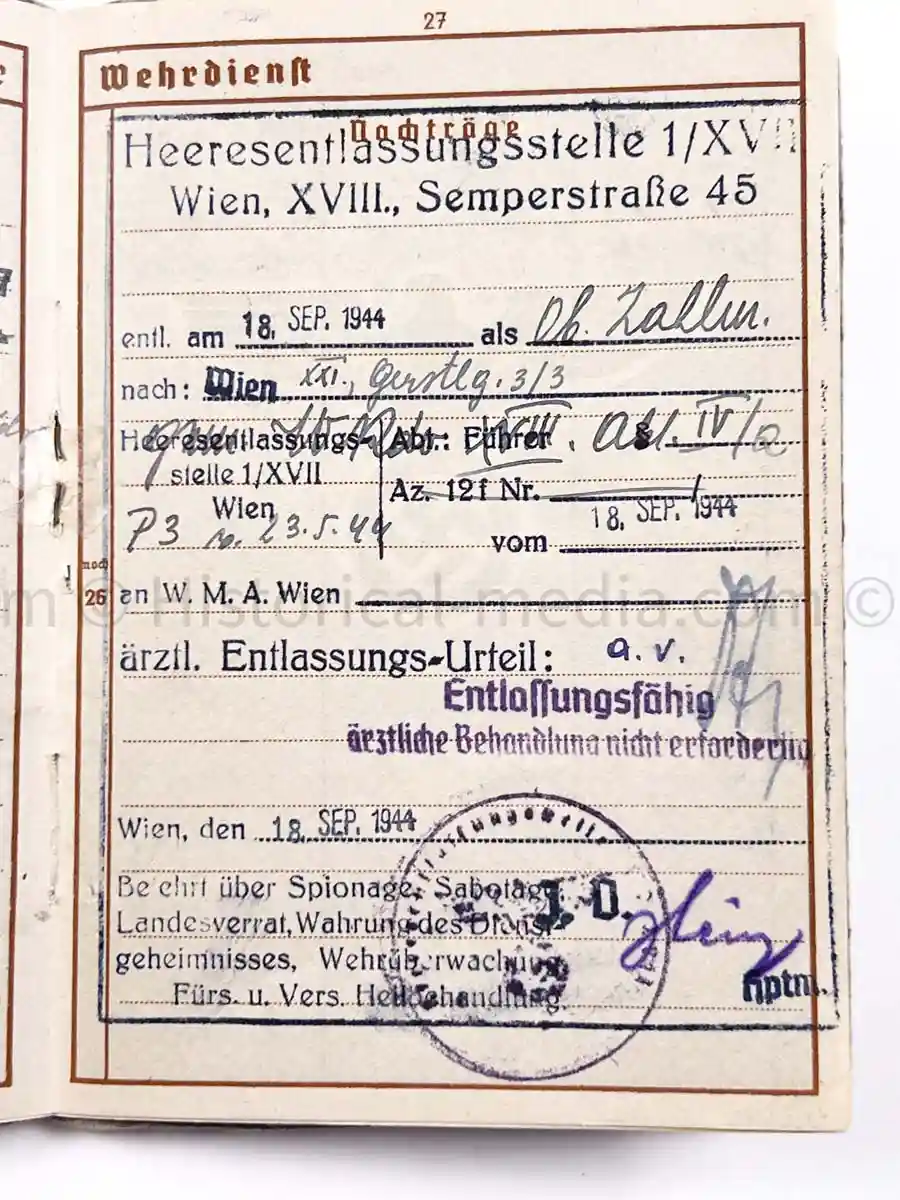 27
Wehrdienst
Nachträge
Heeresentlassungsstelle 1/XVII
Wien, XVIII., Semperstraße 45
entl. am 18. SEP. 1944 als Ob. Zahlm.
nach: Wien XXI., Gerstlg. 3/3
Heeresentlassungs- Abt.: Führer XVIII. Abt. IV/a
stelle 1/XVII
Az. 12 f Nr.
Wien
18. SEP. 1944
P3 v. 23.5.44
vom
noch
26 an W. M. A. Wien
ärztl. Entlassungs-Urteil: a. v.
Entlassungsfähig
ärztliche Behandlung nicht erforderlich
Wien, den 18. SEP. 1944
Belehrt über Spionage, Sabotage,
J. O.
Landesverrat, Wahrung des Dienst-
geheimnisses, Wehrüberwachung
Hptm.
Fürs. u. Vers. Heilbehandlung
m © Historical-media.com ©